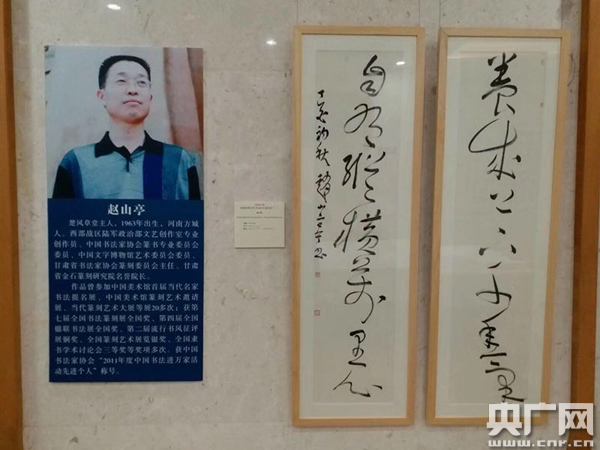 赵山亭
楚风草堂主人，1963年出生，河南方城
人。西部战区陆军政治部文艺创作室专业
创作员、中国书法家协会篆书专业委员会
委员、中国文字博物馆艺术委员会委员、
甘肃省书法家协会篆刻委员会主任、甘肃
省金石篆刻研究院名誉院长。
作品曾参加中国美术馆首届当代名家
书法提名展、中国美术馆篆刻艺术邀请
展、当代篆刻艺术大展等展20多次；获第
七届全国书法篆刻展全国奖、第四届全国
楹联书法展全国奖、第二届流行书风征评
展铜奖、全国篆刻艺术展览银奖、全国隶
书学术讨论会三等奖等奖项多次。获中国
书法家协会“2011年度中国书法进万家活
动先进个人”称号。
養成上下千年氣
自有縱橫萬里心
央广网
www.cnr.cn